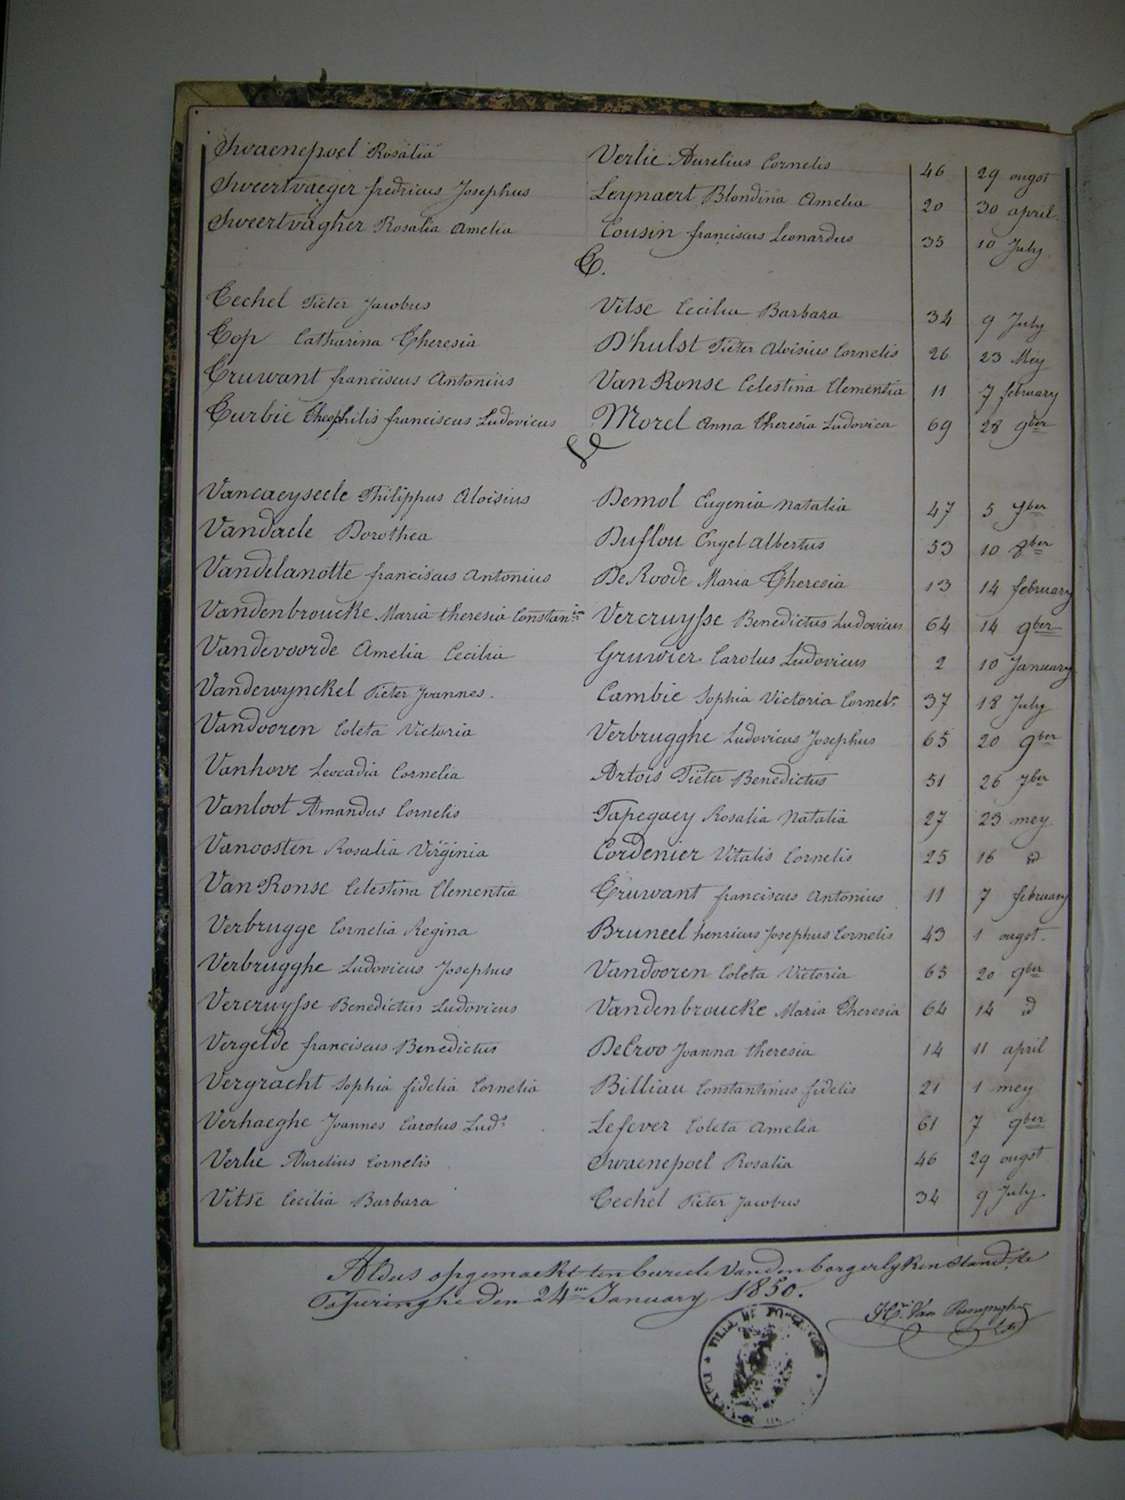 Swaenepoel Rosalia Verlie Aurelius Cornelis 46 29 ougst
Sweertvaeger fredricus Josephus Leynaert Blondina Amelia 20 30 april
Sweertvagher Rosalia Amelia Cousin franciscus Leonardus 35 10 July
T.
Techel Pieter Jacobus Vitse Cecilia Barbara 34 9 July
Top Catharina Theresia D'hulst Pieter Aloisius Cornelis 26 23 Mey
Truwant franciscus Antonius Van Ronse Celestina Clementia 11 7 february
Turbie Theophilis franciscus Ludovicus Morel Anna Theresia Ludovica 69 28 9ber
V
Vancaeyseele Philippus Aloisius Demol Eugenia Natalia 47 5 7ber
Vandaele Dorothea Duflou Engel Albertus 53 10 8ber
Vandelanotte franciscus Antonius De Roode Maria Theresia 13 14 february
Vandenbroucke Maria theresia Constan.ia Vercruysse Benedictus Ludovicus 64 14 9ber
Vandevoorde Amelia Cecilia Gruwier Carolus Ludovicus 2 10 January
Vandewynckel Pieter Joannes. Cambie Sophia Victoria Cornel.a 37 18 July
Vandooren Coleta Victoria Verbrugghe Ludovicus Josephus 65 20 9ber
Vanhove Leocadia Cornelia Artois Pieter Benedictus 51 26 7ber
Vanloot Amandus Cornelis Tapegaey Rosalia Natalia 27 23 mey.
Vanoosten Rosalia Virginia Cordenier Vitalis Cornelis 25 16 id
Van Ronse Celestina Clementia Truwant franciscus Antonius 11 7 february
Verbrugge Cornelia Regina Bruneel henricus Josephus Cornelis 43 1 ougst.
Verbrugghe Ludovicus Josephus Vandooren Coleta Victoria 65 20 9ber
Vercruysse Benedictus Ludovicus Vandenbroucke Maria Theresia 64 14 id
Vergelde franciscus Benedictus DeCroo Joanna theresia 14 11 april
Vergracht Sophia fidelia Cornelia Billiau Constantinus fidelis 21 1 mey
Verhaeghe Joannes Carolus Lud.s Lefever Coleta Amelia 61 7 9ber
Verlie Aurelius Cornelis Swaenepoel Rosalia 46 29 ougst
Vitse Cecilia Barbara Techel Pieter Jacobus 34 9 July.
Aldus opgemaekt ten bureele Van den borgerlyken Stand, te
Poperinghe den 24en January 1850.